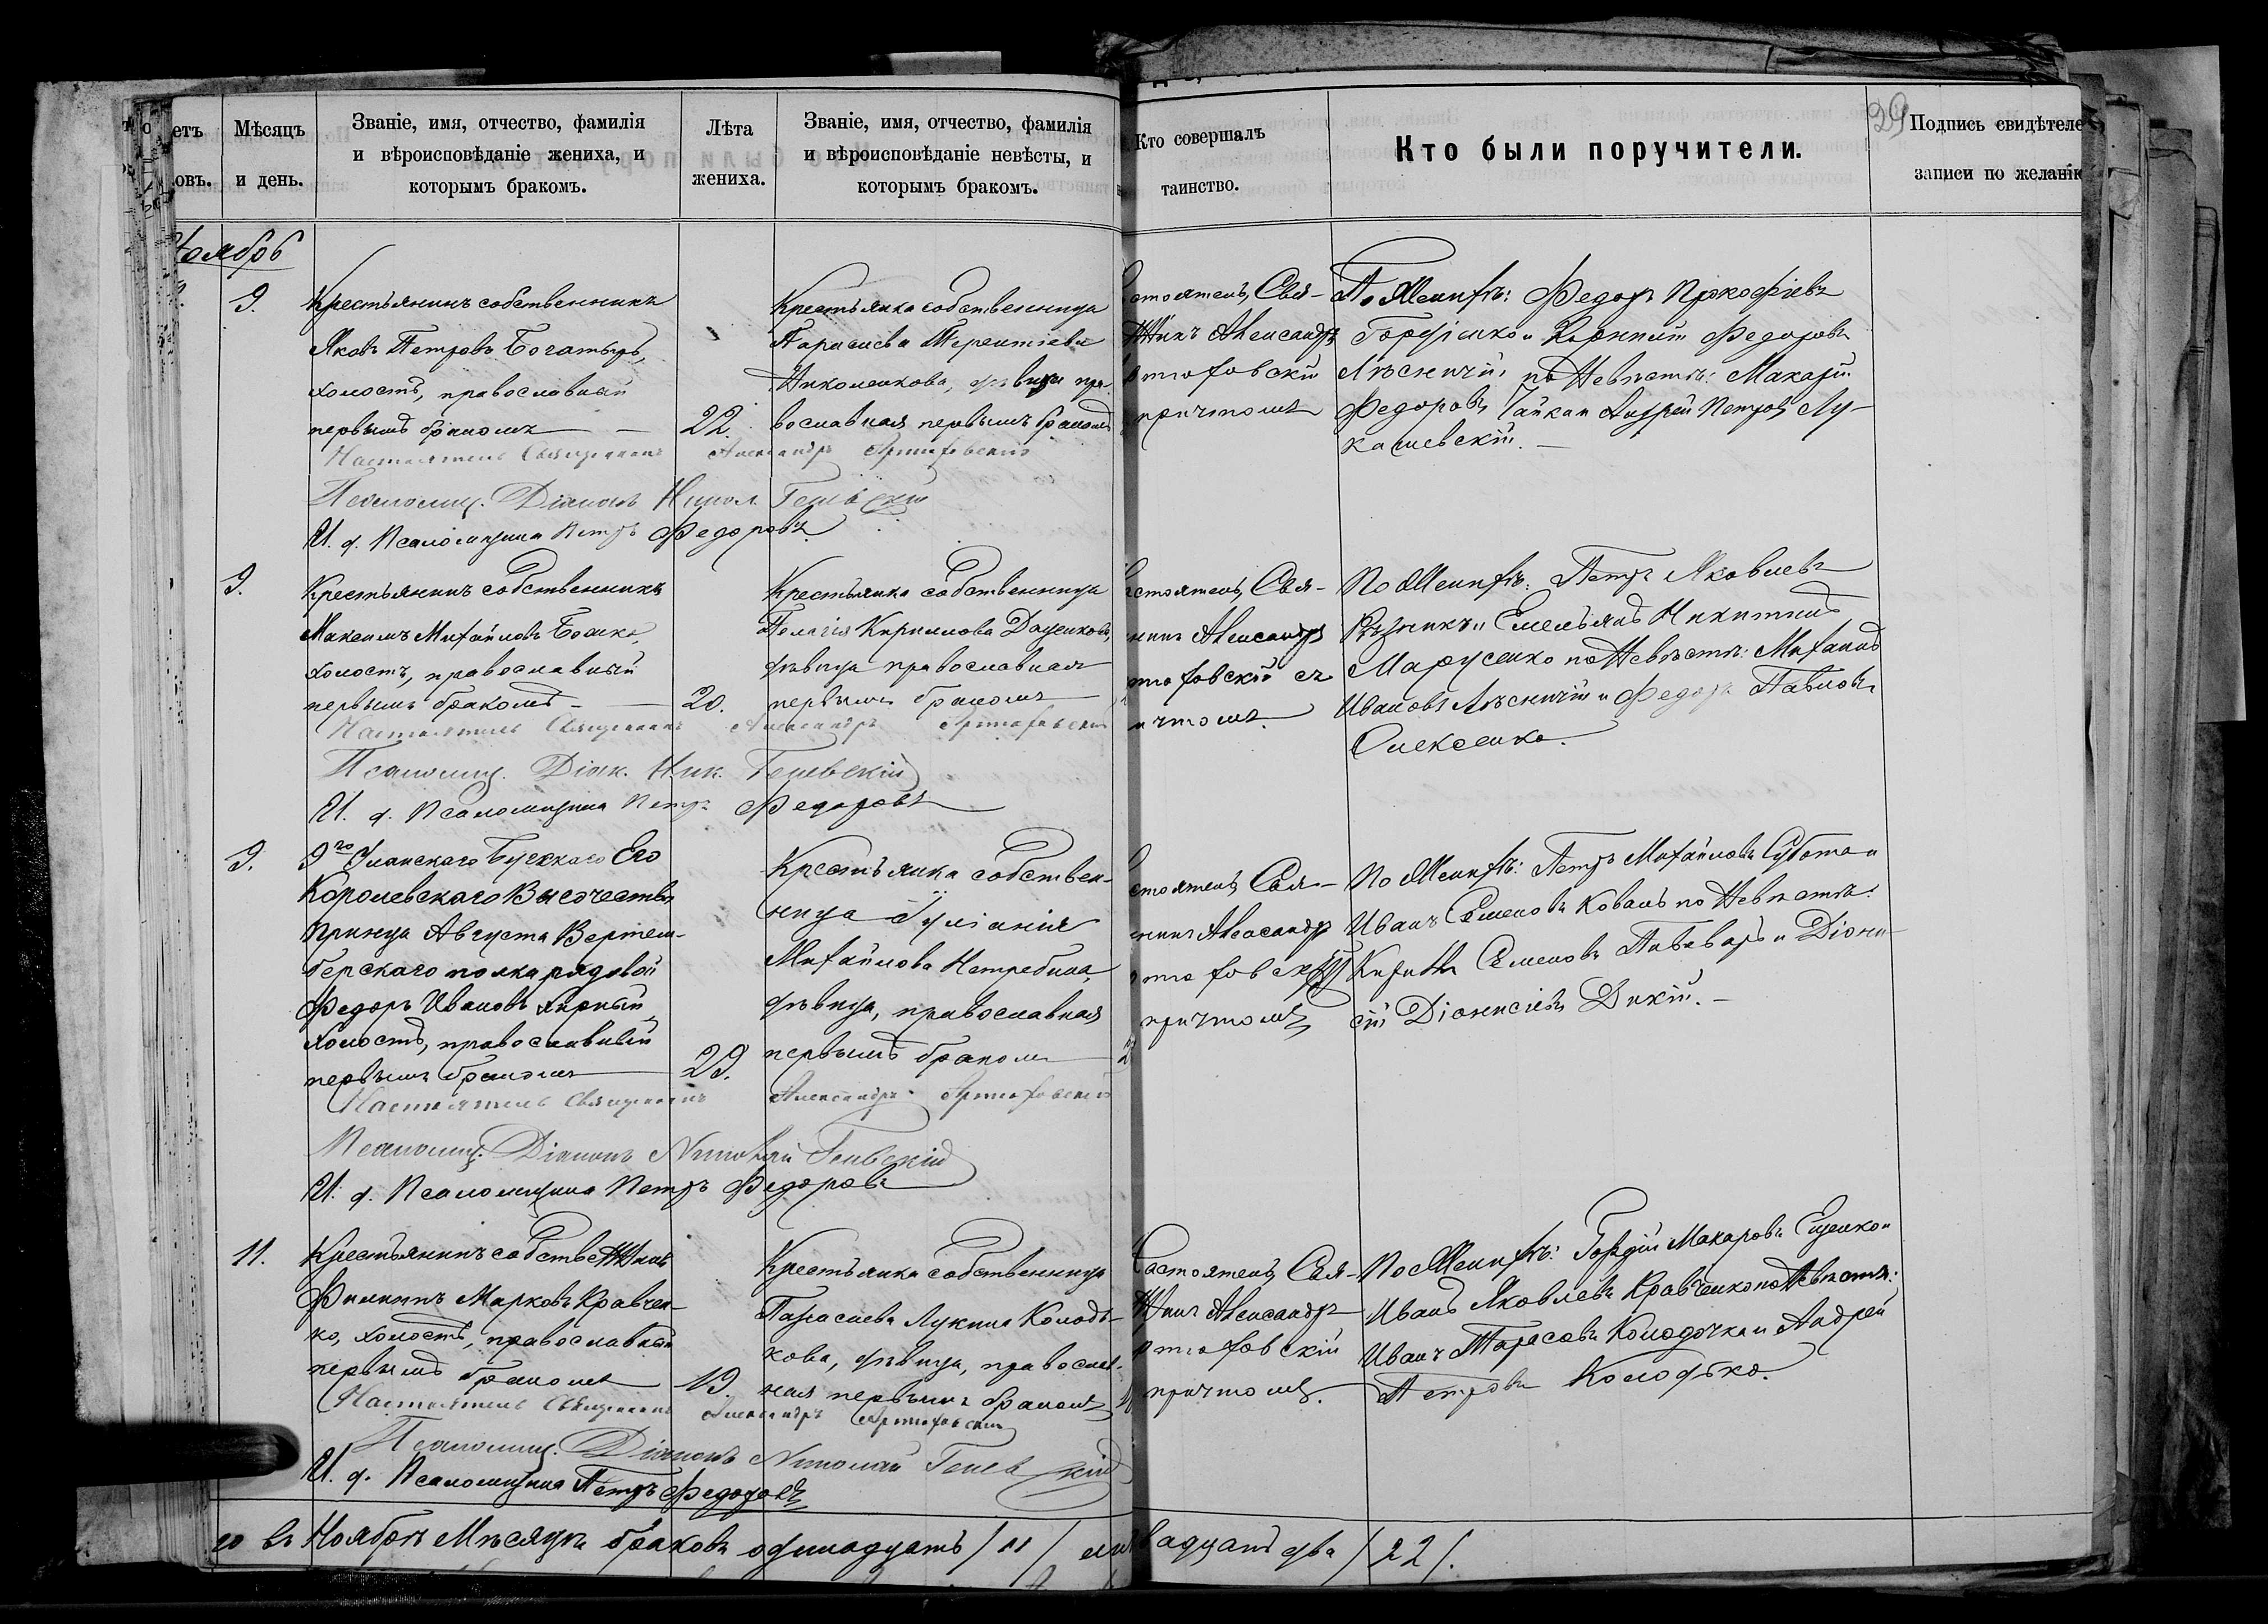 29
етъ
овъ.
Мѣсяцъ
и день.
Званіе, имя, отчество, фамилія
и вѣроисповѣданіе жениха, и
которымъ бракомъ.
Лѣта
жениха.
Званіе, имя, отчество, фамилія
и вѣроисповѣданіе невѣсты, и
которымъ бракомъ.
Кто совершалъ
таинство.
Кто были поручители.
Подпись свидѣтеле
записи по желанію
Ноябрь
9.
Крестьянинъ собственникъ
Яковъ Петровъ Богатырь,
холостъ, православный
первымъ бракомъ
22.
Крестьянка собственница
Параскева Терентіева
Николенкова, дѣвица пра-
вославная первымъ бракомъ
стоятель, Свя-
нникъ Александръ
ртюховскій
причтомъ
По Женихѣ: Федоръ Прокофіевъ
Гордіенко и Корнилій Федоровъ
Лѣсничій, по Невѣстѣ: Макарій
Федоровъ Чайка и Андрей Петровъ Лу-
кашевскій.
Настоятель Священникъ Александръ Артюховскій
Псаломщ. Діаконъ Никол. Геевскій
И. д. Псаломщика Петръ Федоровъ
9.
Крестьянинъ собственникъ
Максимъ Михайловъ Бошко,
холостъ, православный
первымъ бракомъ
20.
Крестьянка собственница
Пелагія Кириллова Даценкова,
дѣвица православная
первымъ бракомъ
стоятель, Свя-
нникъ Александръ
тюховскій съ
ичтомъ
По Женихѣ: Петръ Яковлевъ
Рѣзникъ и Емельянъ Никитинъ
Марусенко по Невѣстѣ: Михаилъ
Ивановъ Лѣсничій и Федоръ Павловъ
Олексенко.
Настоятель Священникъ Александръ Артюховскій
Псаломщ. Діак. Ник. Геевскій
И. д. Псаломщика Петръ Федоровъ
9.
9го Уланскаго Бугскаго Его
Королевскаго Высочества
Принца Августа Вертем-
бергскаго полка рядовой
Федоръ Ивановъ
холостъ, православный
первымъ бракомъ
29.
Крестьянка собствен-
ница Іуліанія
Михайлова Нетребина,
дѣвица, православная
первымъ бракомъ
стоятель, Свя-
нникъ Александръ
ртюховскій
причтомъ
По Женихѣ: Петръ Михайловъ Субота и
Иванъ Семеновъ Коваль по Невѣстѣ:
Семеновъ Пивоваръ и Діони-
сій Діонисіевъ Дикій.
Настоятель Священникъ Александръ Артюховскій
Псаломщ. Діаконъ Николай Геевскій
И. д. Псаломщика Петръ Федоровъ
11.
Крестьянинъ собственникъ
Филиппъ Марковъ Кравчен-
ко, холостъ, православный
первымъ бракомъ
19.
Крестьянка собственница
Параскева Лукина Колодь-
кова, дѣвица, православ-
ная первымъ бракомъ
Настоятель, Свя-
нникъ Александръ
ртюховскій
причтомъ.
По Женихѣ: Гордій Макаровъ Ещенко и
Иванъ Яковлевъ Кравченко по Невѣстѣ:
Иванъ Тарасовъ Колодочка и Андрей
Петровъ Колодько.
Настоятель Священникъ Александръ Артюховскій
Псаломщ. Діаконъ Николай Геевскій
И. д. Псаломщика Петръ Федоровъ
го въ Ноябрѣ Мѣсяцѣ браковъ одинадцать /11/ вадцать два /22/.